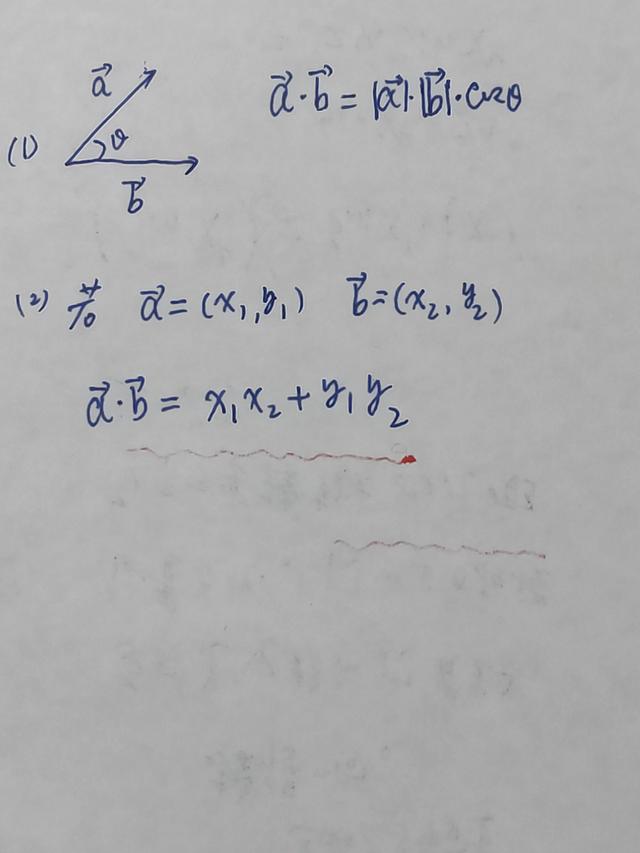 (1) a⃗ θ b⃗ a⃗·b⃗ = |a⃗|·|b⃗|·cosθ
(2) 若 a⃗ = (x₁, y₁) b⃗ = (x₂, y₂)
a⃗·b⃗ = x₁x₂ + y₁y₂